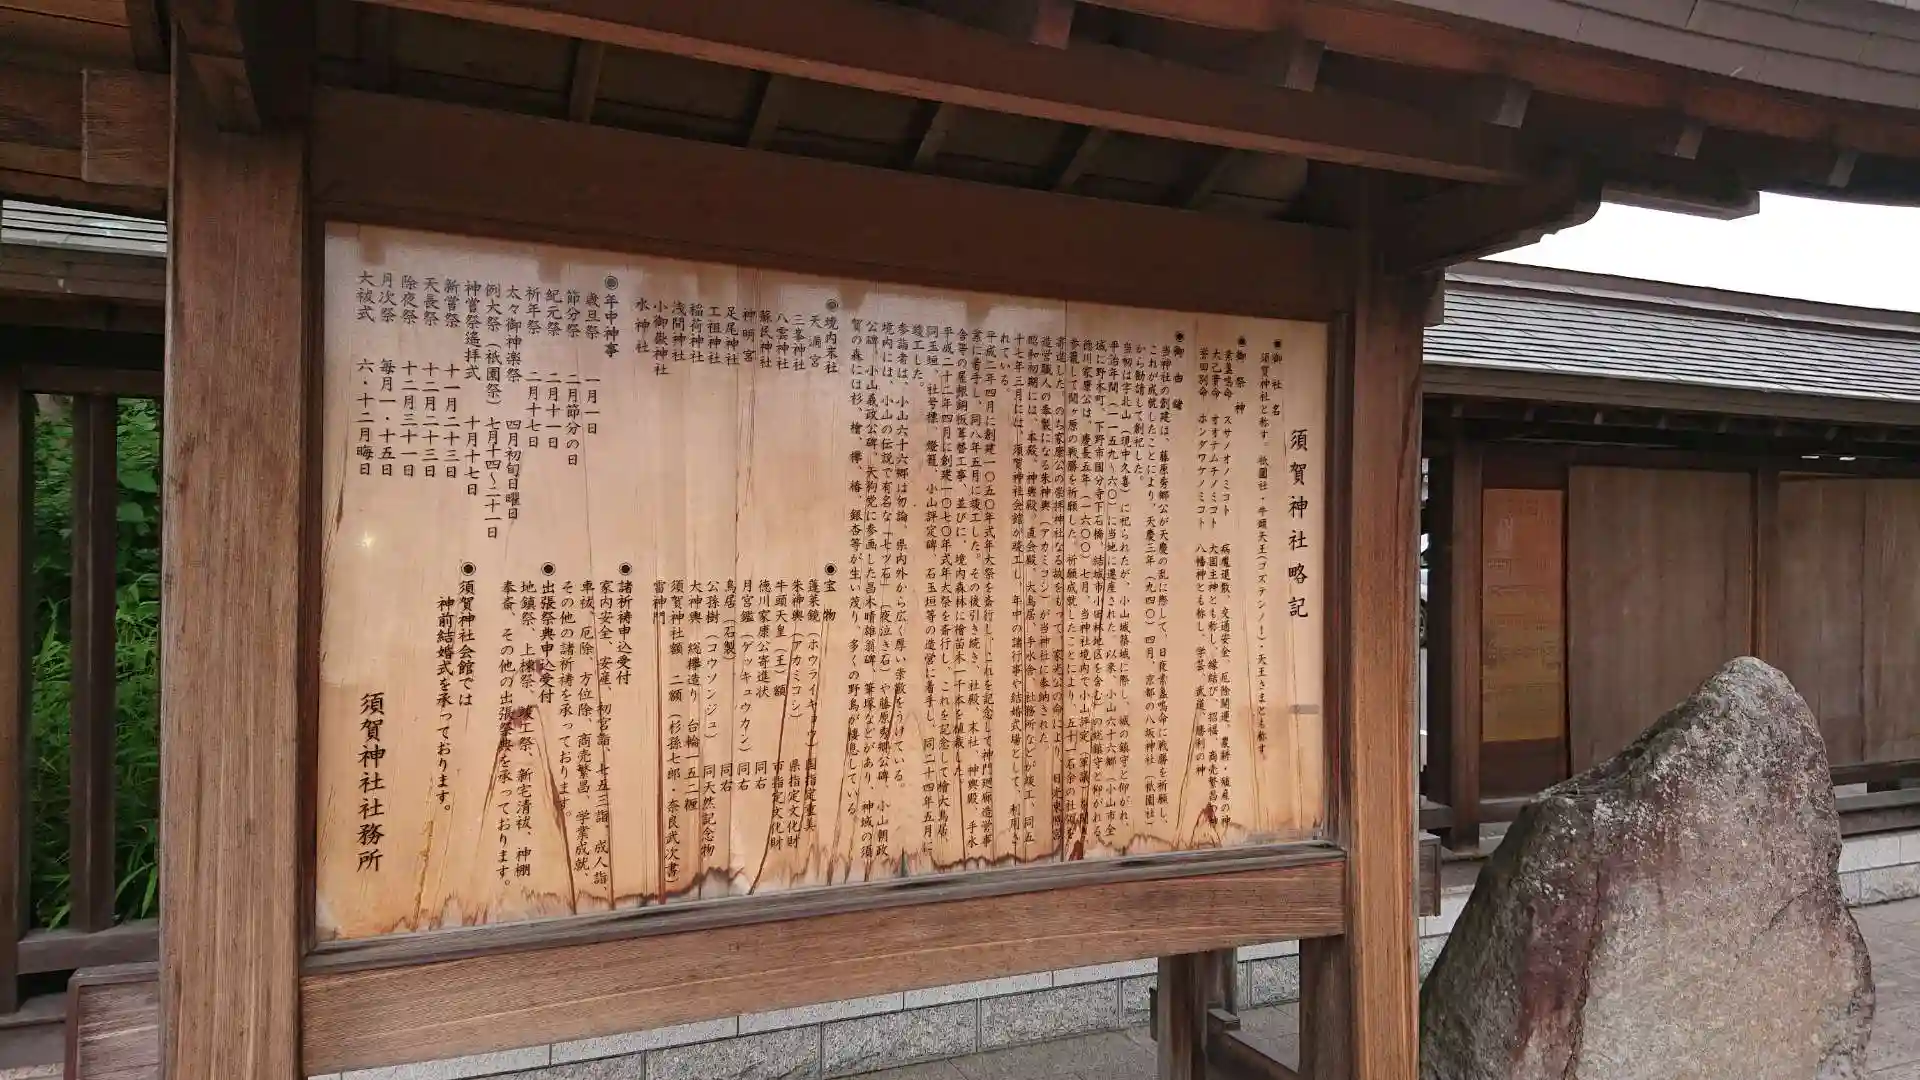 須賀神社略記
◉御社名
須賀神社と称す。祇園社・牛頭天王(ゴズテンノー)・天王さまとも称す。
◉御祭神
素戔嗚命 スサノオノミコト 病魔退散、交通安全、厄除開運、農耕・殖産の神
大己貴命 オオナムチノミコト 大国主神とも称し、縁結び、招福、商売繁昌の神
誉田別命 ホンダワケノミコト 八幡神とも称し、学芸、武運、勝利の神
◉御由緒
当神社の創建は、藤原秀郷公が天慶の乱に際して、日夜素戔嗚命に戦勝を祈願し、
これが成就したことにより、天慶三年(九四〇)四月、京都の八坂神社(祇園社)
から勧請して創祀した。
当初は字北山(現中久喜)に祀られたが、小山城築城に際し、城の鎮守と仰がれ、
平治年間(一一五九~六〇)に当地に遷座された。以来、小山六十六郷(小山市全
域に野木町、下野市国分寺下石橋、結城市小田林地区を含む)の総鎮守と仰がれる。
徳川家康公は、慶長五年(一六〇〇)七月、当神社境内で小山評定(軍議)を開き
参籠して関ヶ原の戦勝を祈願した。祈願成就したことにより、五十一石余の社領を
寄進した。のち家康公の崇拝神社なる故をもって、家光公の命により、日光東照宮
造営職人の奉製になる朱神輿(アカミコシ)が当神社に奉納された。
昭和初期には、本殿、神輿殿、直会殿、大鳥居、手水舎、社務所などが竣工、同五
十七年三月には、須賀神社会館が竣工し、年中の諸行事や結婚式場として、利用さ
れている。
平成二年四月に創建一〇五〇年式年大祭を斎行し、これを記念して神門廻廊造営事
業に着手し、同八年五月に竣工した。その後引き続き、社殿、末社、神輿殿、手水
舎等の屋根銅板葺替工事、並びに、境内森林に檜苗木一千本を植栽した。
平成二十二年四月に創建一〇七〇年式年大祭を斎行し、これを記念して檜大鳥居、
同玉垣、社号標、燈籠、小山評定碑、石玉垣等の造営に着手し、同二十四年五月に
竣工した。
参詣者は、小山六十六郷は勿論、県内外から広く厚い崇敬をうけている。
境内には、小山の伝説で有名な「七ツ石」(夜泣き石)や藤原秀郷公碑、小山朝政
公碑、小山義政公碑、天狗党に参画した昌木晴雄翁碑、筆塚などがあり、神域の須
賀の森には杉、檜、欅、椿、銀杏等が生い茂り、多くの野鳥が棲息している。
◉境内末社
天満宮
三峯神社
八雲神社
蘇民神社
神明宮
足尾神社
工祖神社
稲荷神社
浅間神社
小御嶽神社
水神社
◉宝物
蓬莱鏡(ホウライキョウ)国指定重美
朱神輿(アカミコシ) 県指定文化財
牛頭天皇(王)額 市指定文化財
徳川家康公寄進状 同右
月宮鑑(ゲッキュウカン) 同右
鳥居(石製) 同右
公孫樹(コウソンジュ) 同天然記念物
大神輿 総欅造り 台輪一五二糎
須賀神社額 二額(杉孫七郎・奈良武次書)
雷神門
◉年中神事
歳旦祭 一月一日
節分祭 二月節分の日
紀元祭 二月十一日
祈年祭 二月十七日
太々御神楽祭 四月初旬日曜日
例大祭(祇園祭) 七月十四~二十一日
神嘗祭遙拝式 十月十七日
新嘗祭 十一月二十三日
天長祭 十二月二十三日
除夜祭 十二月三十一日
月次祭 毎月一・十五日
大祓式 六・十二月晦日
◉諸祈祷申込受付
家内安全、安産、初宮詣、七五三詣、成人詣、
車祓、厄除、方位除、商売繁昌、学業成就、
その他の諸祈祷を承っております。
◉出張祭典申込受付
地鎮祭、上棟祭、竣工祭、新宅清祓、神棚
奉斎、その他の出張祭典を承っております。
◉須賀神社会館では
神前結婚式を承っております。
須賀神社社務所